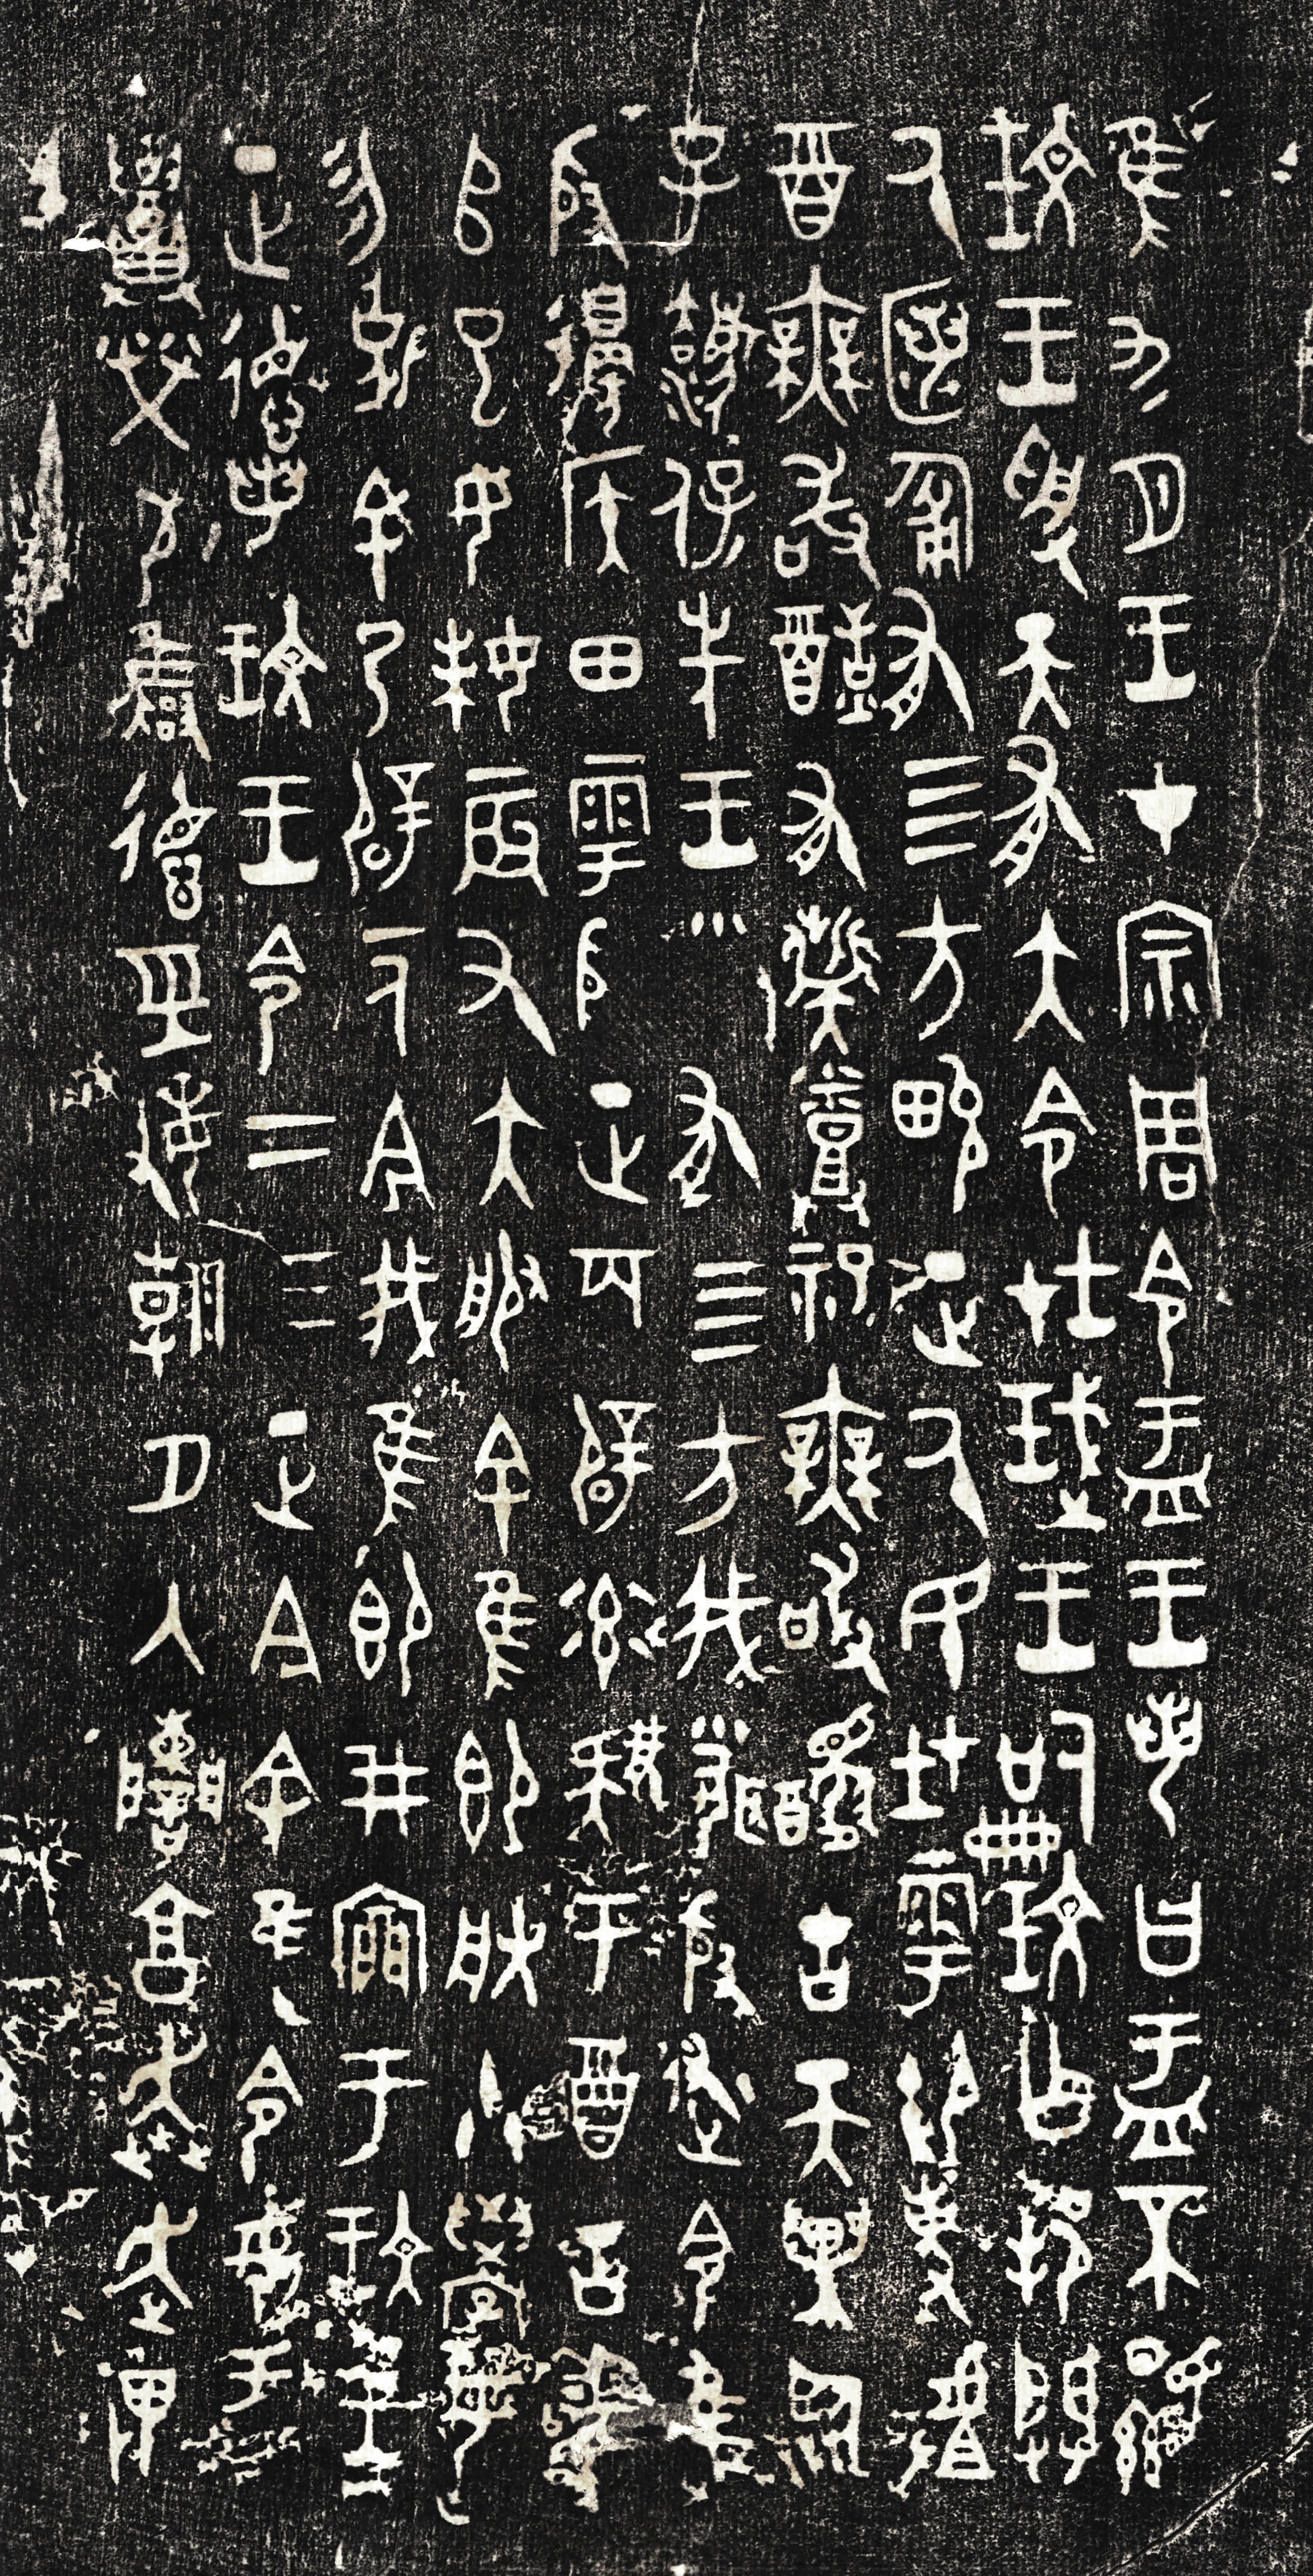 隹九月王才宗周令盂王若曰盂不顯
玟王受天有大令在珷王嗣玟乍邦闢
厥匿匍有四方畯正厥民在雩御事𠭯
酉無敢酖有髭烝祀無敢擾古天異臨
子灋保先王有四方我聞殷述令隹
殷邊侯田雩殷正百辟率肄于酉古喪
𠂤巳女妹辰又大服余隹即朕小學女
勿𠣬余乃辟一人今我隹即井㐭于玟王
正德若玟王令二三正今余隹令女盂
召榮敬雍德經敏朝夕入讕享奔走畏